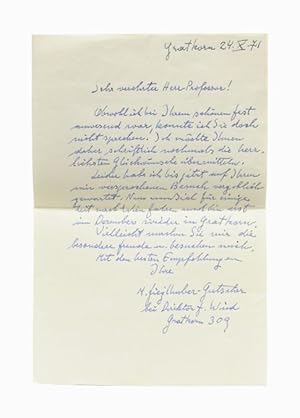 Gratkorn 24. X. 71
Sehr verehrter Herr Professor!
Obwohl ich bei Ihrem schönen Fest
anwesend war, konnte ich Sie doch
nicht sprechen. Ich möchte Ihnen
daher schriftlich nochmals die herz
lichsten Glückwünsche übermitteln.
Leider habe ich bis jetzt auf Ihren
mir versprochenen Besuch vergeblich
gewartet. Nun wird für einige
Zeit nach Wien fahren und bin erst
im Dezember wieder in Gratkorn.
Vielleicht machen Sie mir die
besondere Freude u. besuchen mich.
Mit den besten Empfehlungen
Ihre
bei Direktor F. Wied
Gratkorn 309